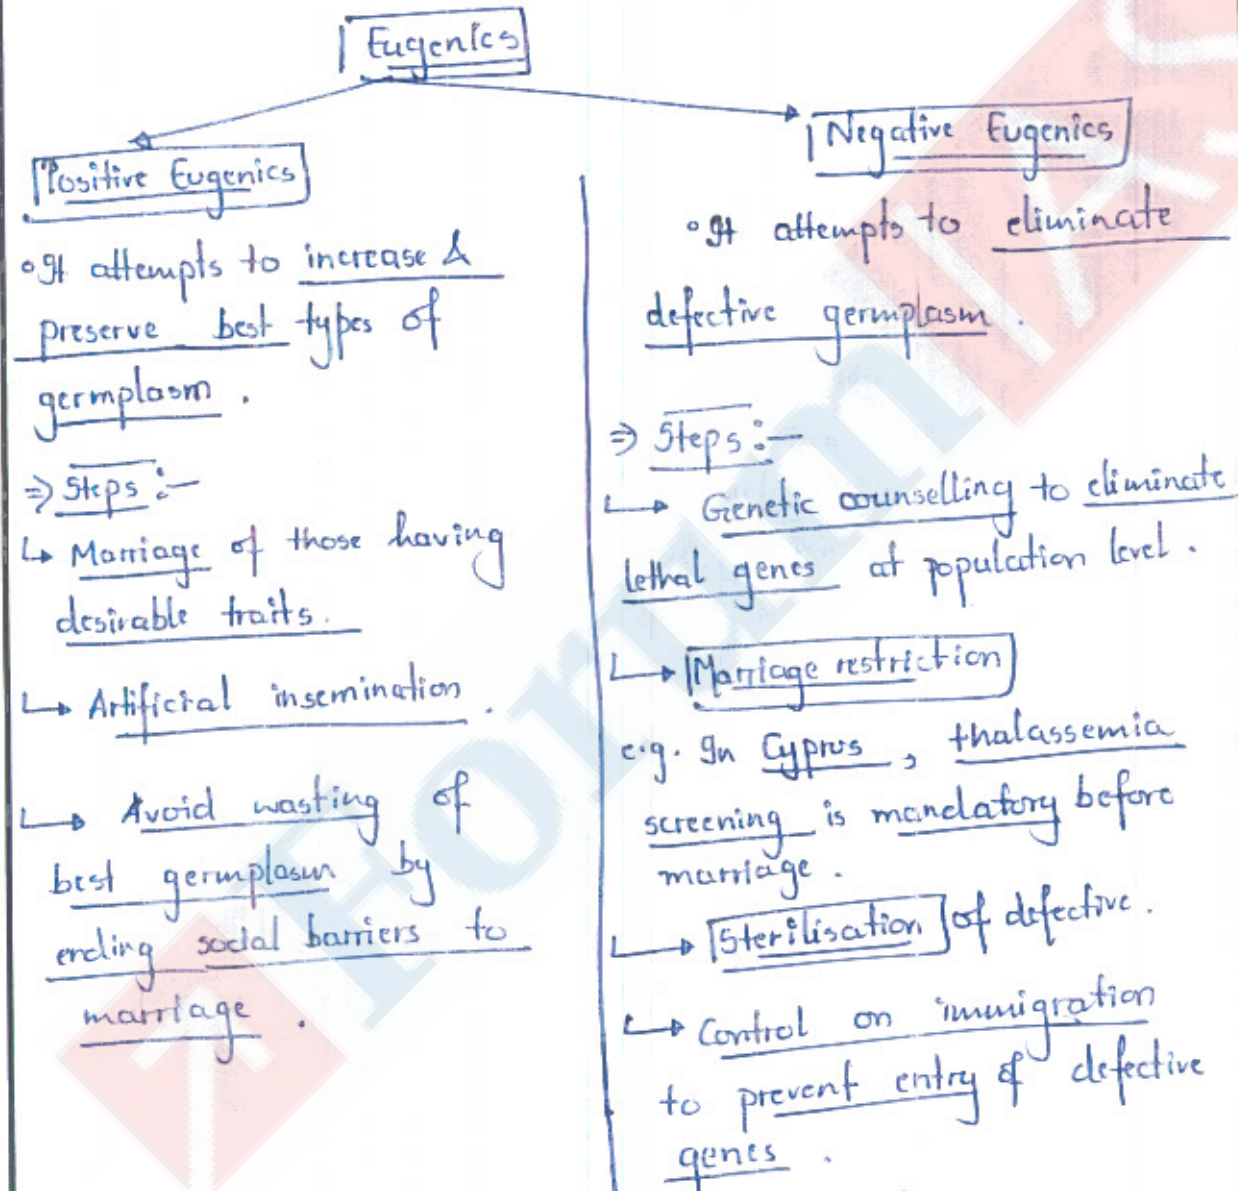 Eugenics
Positive Eugenics
• It attempts to increase &
preserve best types of
germplasm.
⇒ Steps :-
↳ Marriage of those having
desirable traits.
↳ Artificial insemination.
↳ Avoid wasting of
best germplasm by
ending social barriers to
marriage.
Negative Eugenics
• It attempts to eliminate
defective germplasm.
⇒ Steps :-
↳ Genetic counselling to eliminate
lethal genes at population level.
↳ Marriage restriction
e.g. In Cyprus, thalassemia
screening is mandatory before
marriage.
↳ Sterilisation of defective.
↳ Control on immigration
to prevent entry of defective
genes.
Forum IAS